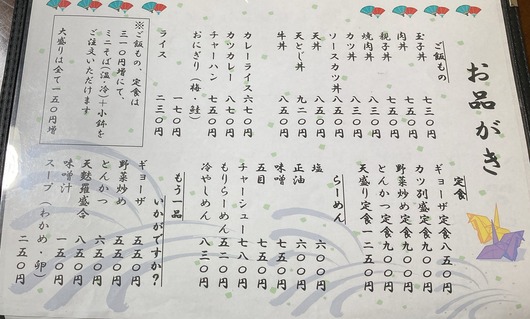 お品がき
ご飯もの
玉子丼 七三〇円
肉丼 七五〇円
親子丼 七五〇円
焼肉丼 八五〇円
カツ丼 八五〇円
ソースカツ丼 八五〇円
天丼 八五〇円
天とじ丼 九二〇円
牛丼 八五〇円
カレーライス 六七〇円
カツカレー 八七〇円
チャーハン 七五〇円
おにぎり(梅・鮭) 一七〇円
ライス 二三〇円
※ご飯もの、定食は
三一〇円増にて、
ミニそば(温・冷)+小鉢を
ご注文いただけます
大盛りは全て一五〇円増
定食
ギョーザ定食 八五〇円
カツ別盛定食 九〇〇円
野菜炒め定食 九〇〇円
とんかつ定食 九〇〇円
天盛り定食 一二五〇円
らーめん
塩 六〇〇円
正油 六〇〇円
味噌 七五〇円
五目 七五〇円
チャーシュー 七八〇円
もりらーめん 五二〇円
冷やしめん 八三〇円
もう一品
いかがですか?
ギョーザ 五五〇円
野菜炒め 五五〇円
とんかつ 六五〇円
天麩羅盛合 八五〇円
味噌汁 一五〇円
スープ(わかめ・卵) 二五〇円